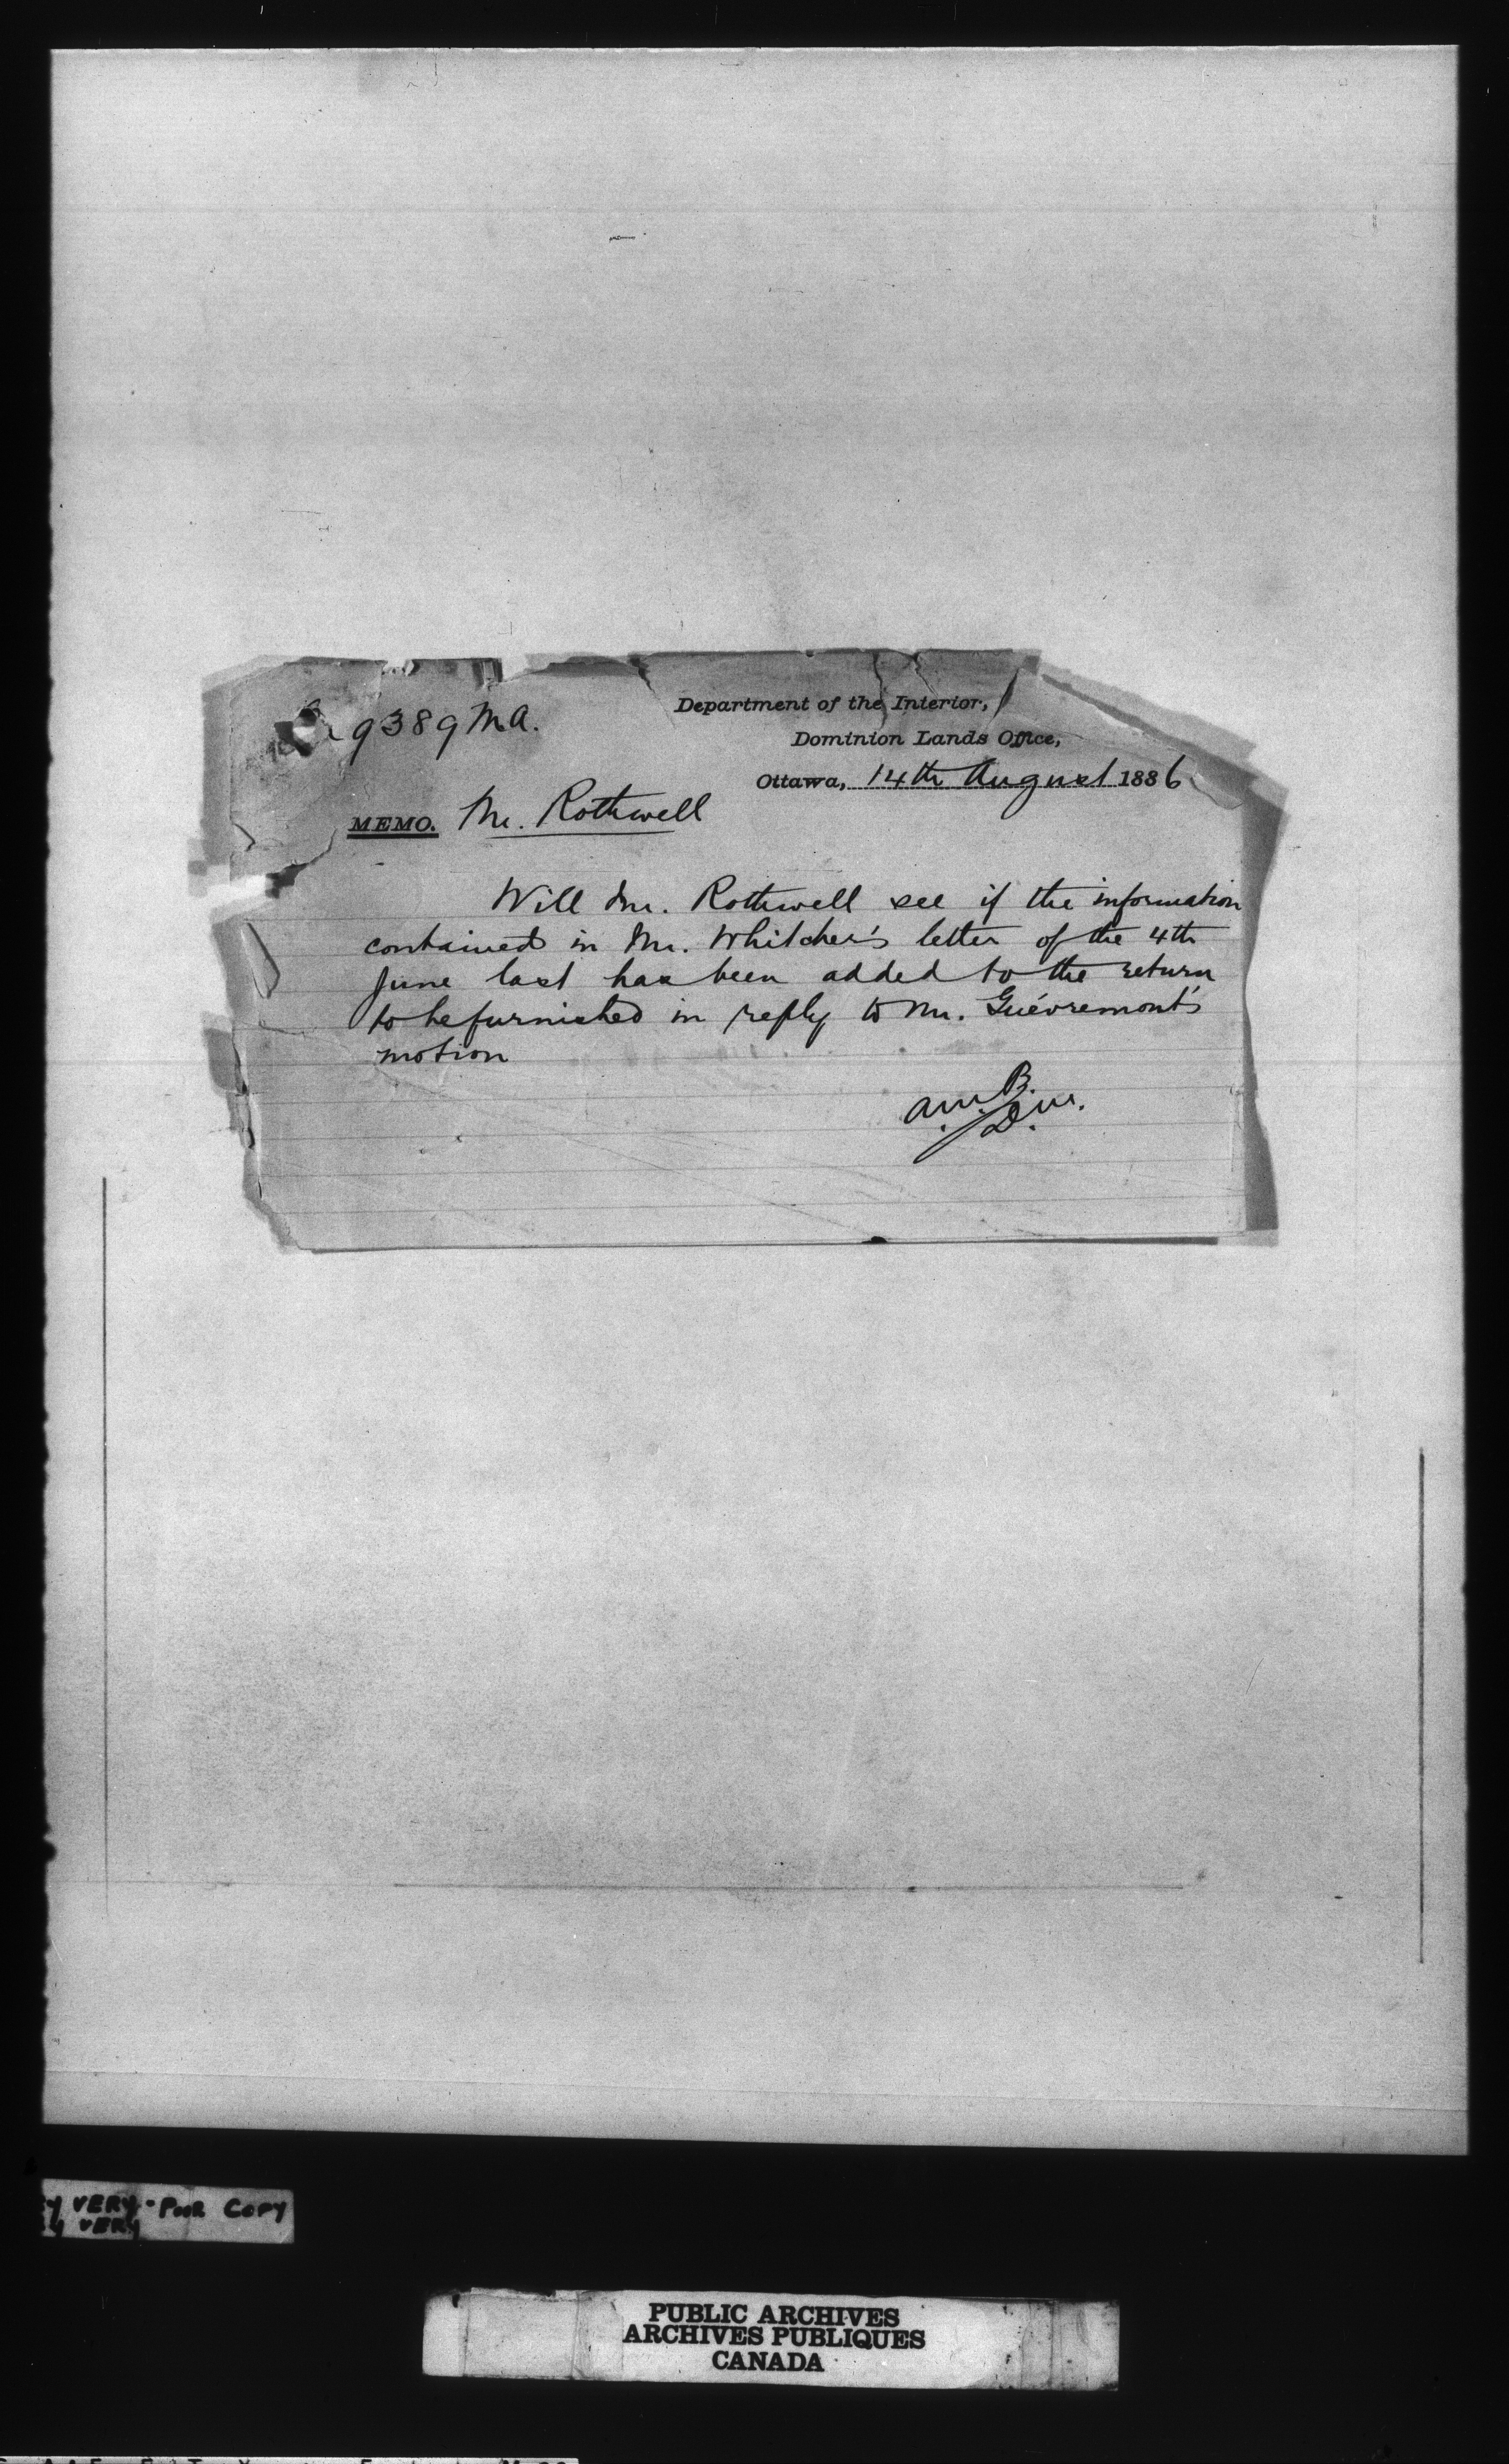 9389 MA.
Department of the Interior,
Dominion Lands Office,
Ottawa, 14th August 1886
MEMO. Mr. Rothwell
Will Mr. Rothwell see if the information
contained in Mr. Whitcher's letter of the 4th
June last has been added to the return
to be furnished in reply to Mr. Guévremont's
motion
A.M.B.
D.M.
VERY - POOR COPY
VERY
PUBLIC ARCHIVES
ARCHIVES PUBLIQUES
CANADA